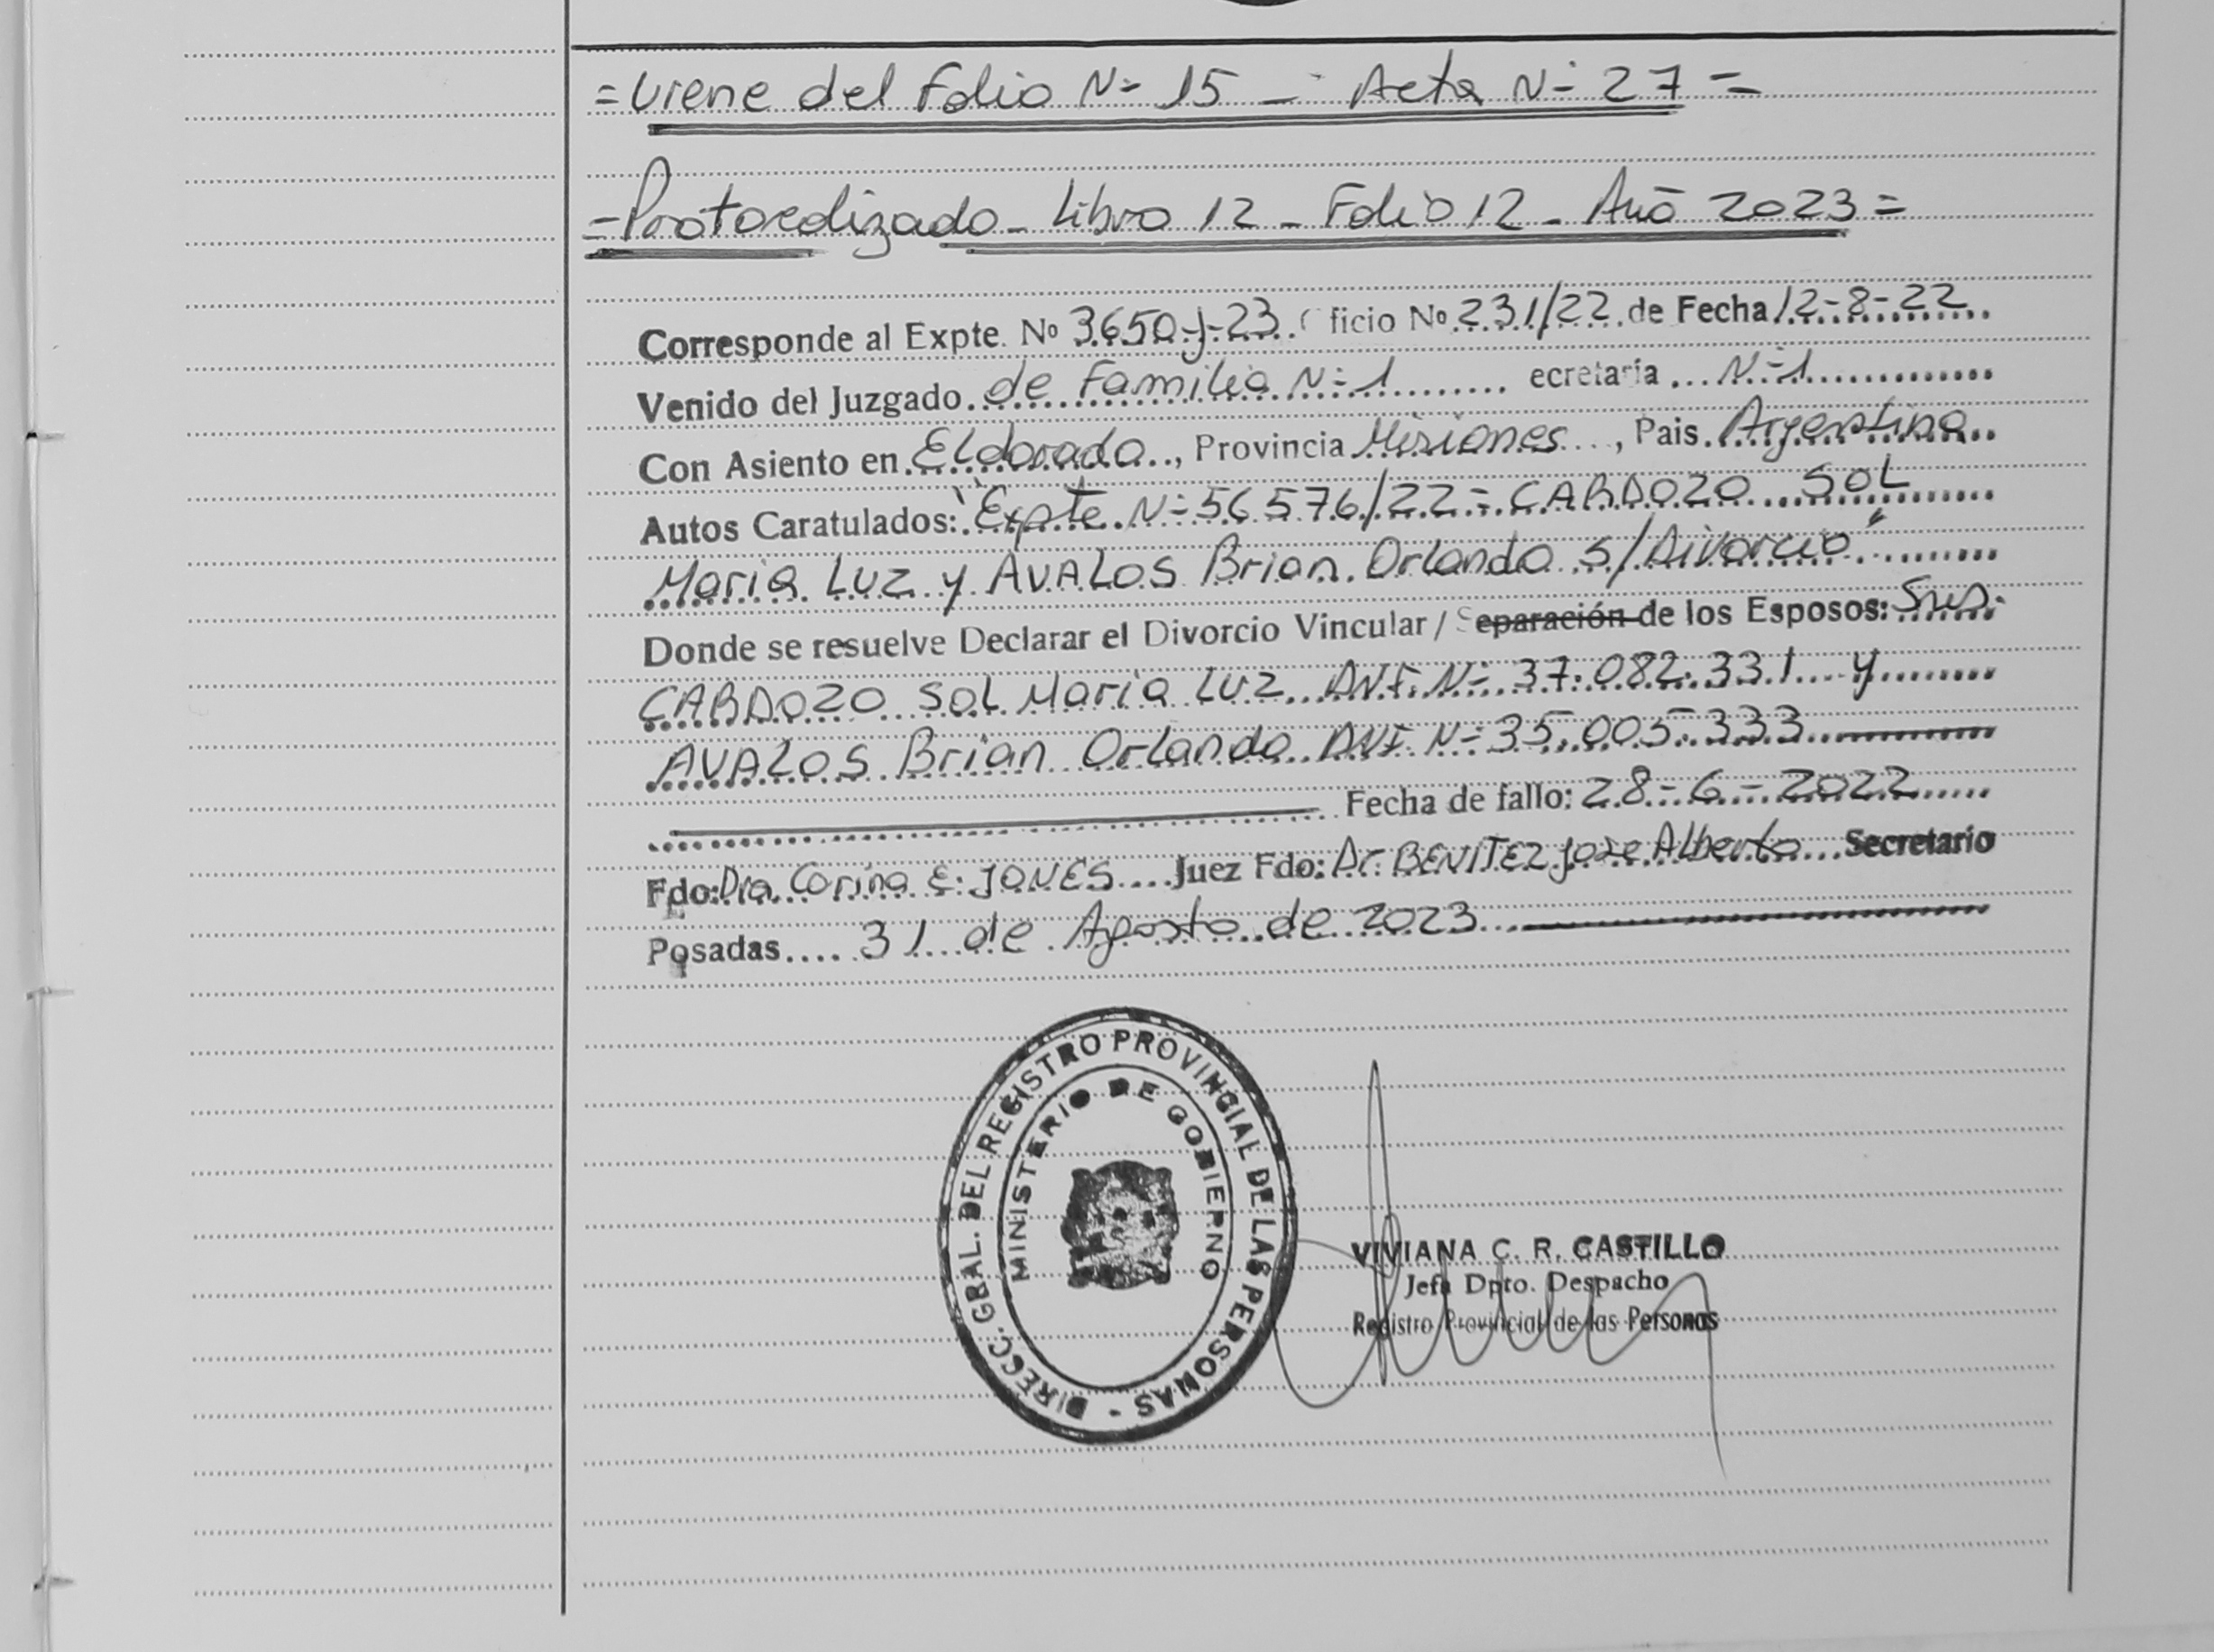 =Viene del Folio Nº 15 - Acta Nº 27=
=Protocolizado - Libro 12 - Folio 12 - Año 2023=
Corresponde al Expte. Nº 3650-J-23. ficio Nº 231/22 de Fecha 12-8-22
Venido del Juzgado de Familia Nº 1 ecretaria Nº 1
Con Asiento en Eldorado, Provincia Misiones, Pais Argentina
Autos Caratulados: "Expte Nº 56576/22 = CARDOZO SOL
Maria Luz y AVALOS Brian Orlando s/Divorcio"
Donde se resuelve Declarar el Divorcio Vincular / Separación de los Esposos: Sres.
CARDOZO Sol Maria Luz DNI. Nº 37.082.331 y
AVALOS Brian Orlando DNI. Nº 35.005.333
Fecha de fallo: 28-6-2022
Fdo: Dra. Corina E. JONES Juez Fdo: Dr. BENITEZ Jose Alberto Secretario
Posadas 31 de Agosto de 2023
DIRECC. GRAL. DEL REGISTRO PROVINCIAL DE LAS PERSONAS -
MINISTERIO DE GOBIERNO
VIVIANA C. R. CASTILLO
Jefa Dpto. Despacho
Registro Provincial de las Personas